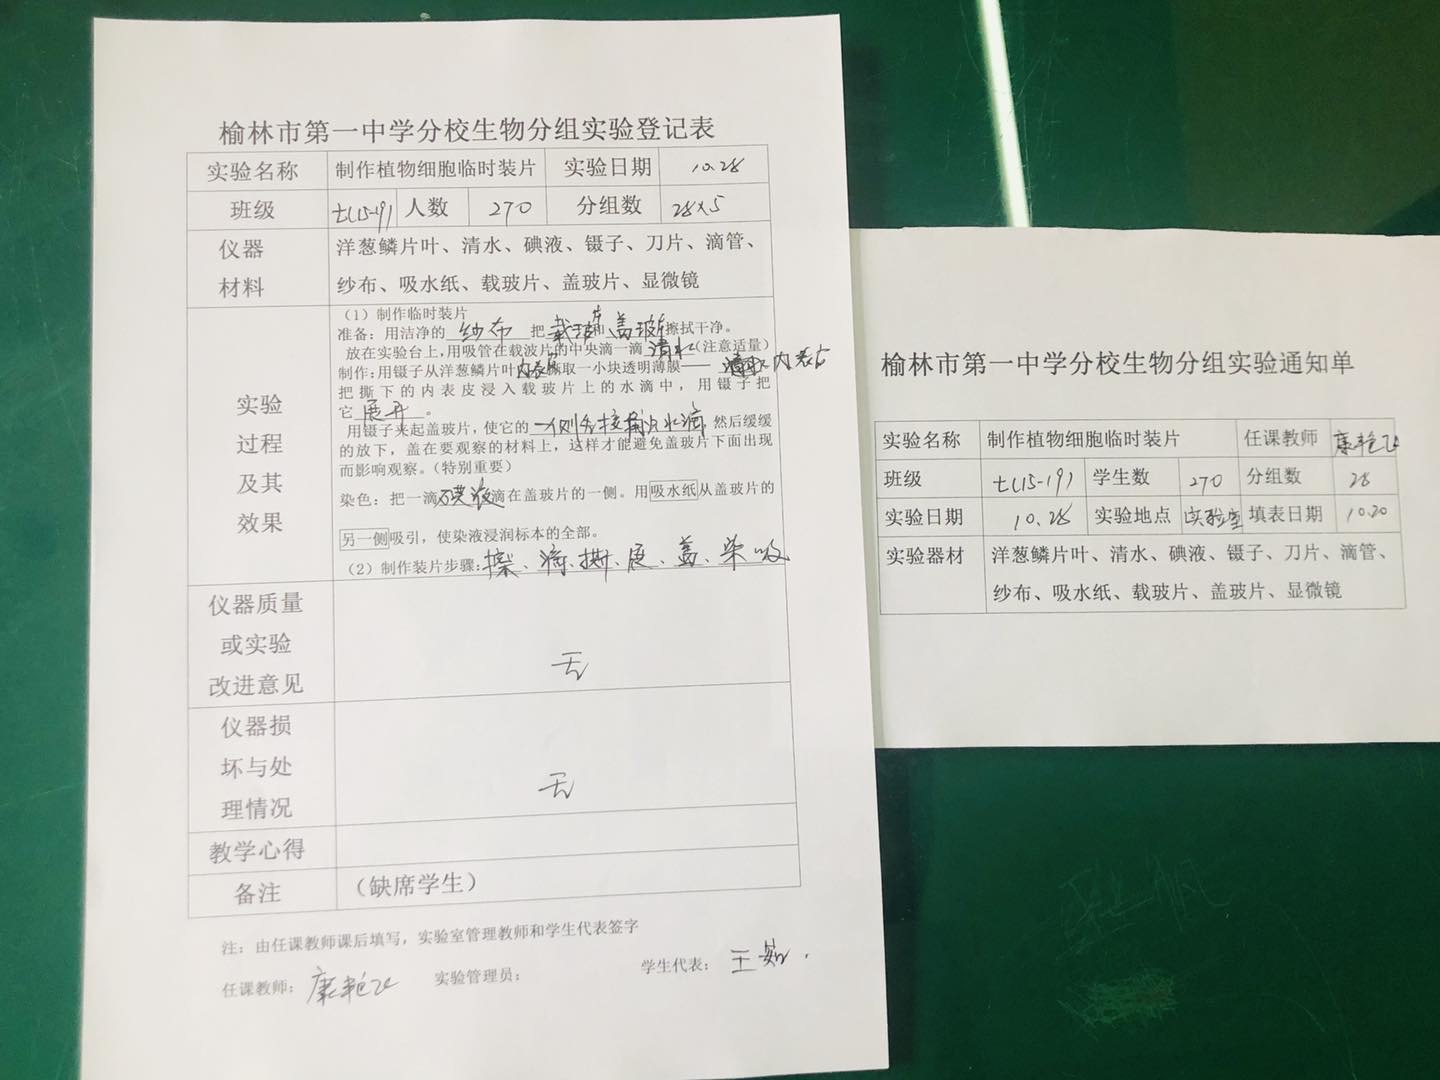 榆林市第一中学分校生物分组实验登记表
实验名称 制作植物细胞临时装片 实验日期 10.28
班级 七(15-19) 人数 270 分组数 28×5
仪器 洋葱鳞片叶、清水、碘液、镊子、刀片、滴管、
材料 纱布、吸水纸、载玻片、盖玻片、显微镜
实验
过程
及其
效果
(1)制作临时装片
准备:用洁净的纱布把载玻片和盖玻片擦拭干净。
放在实验台上,用吸管在载波片的中央滴一滴清水(注意适量)
制作:用镊子从洋葱鳞片叶内表皮撕取一小块透明薄膜——内表皮
把撕下的内表皮浸入载玻片上的水滴中,用镊子把
它展开。
用镊子夹起盖玻片,使它的一侧先接触水滴,然后缓缓
的放下,盖在要观察的材料上,这样才能避免盖玻片下面出现
而影响观察。(特别重要)
染色:把一滴碘液滴在盖玻片的一侧。用吸水纸从盖玻片的
另一侧吸引,使染液浸润标本的全部。
(2)制作装片步骤:擦、滴、撕、展、盖、染、吸
仪器质量
或实验
改进意见
无
仪器损
坏与处
理情况
无
教学心得
备注 (缺席学生)
注:由任课教师课后填写,实验室管理教师和学生代表签字
任课教师:康艳 实验管理员: 学生代表:王
榆林市第一中学分校生物分组实验通知单
实验名称 制作植物细胞临时装片 任课教师 康艳
班级 七(15-19) 学生数 270 分组数 28
实验日期 10.28 实验地点 实验室 填表日期 10.20
实验器材 洋葱鳞片叶、清水、碘液、镊子、刀片、滴管、
纱布、吸水纸、载玻片、盖玻片、显微镜